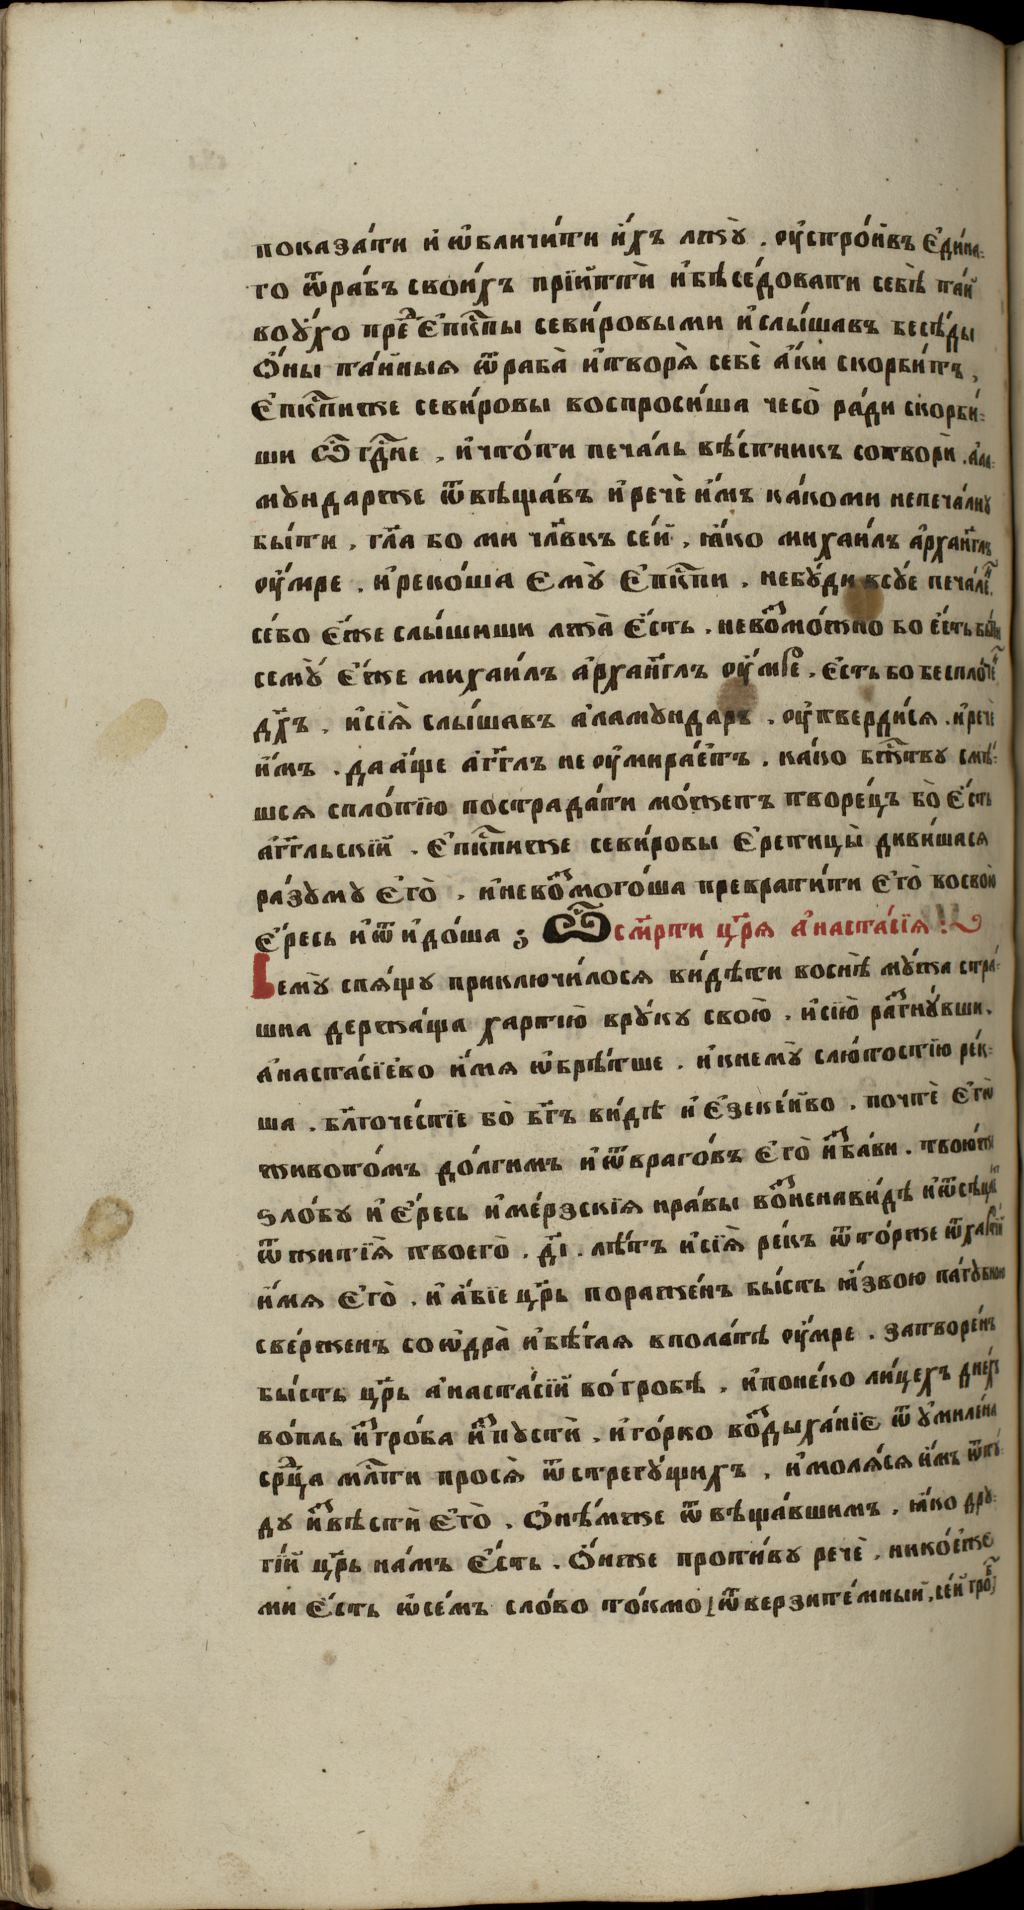 показа́ти и҆ ѡ҆бличи́ти и҆́хъ лжꙋ̀ . ᲂу҆стро́ивъ є҆ди́на-
го ѿраб́ъ свои́хъ прїи́тѝ и҆бесе́довати себѣ̀ та́й
воᲂу҆́хо пре́дъ є҆пⷭ҇кпы севи́ровыми и҆слы́шавъ бесѣ́ды
Ѻ҆́ны та́йныя ѿраба̀ и҆творѧ̀ себѐ а҆́ки скорби́тъ ,
Є҆пⷭ҇кпиже севи́ровы воспроси́ша чесо̀ ра́ди скорби́-
ши Ѽ гдⷭ҇не , и҆что́ти печа́ль вѣ́стникъ сотворѝ . а҆ла-
мꙋндарже ѿвѣща́въ и҆речѐ и҆̀мъ ка́коми непеча́лнꙋ
бы́ти , гл҃а бо ми чл҃вкъ се́й , ꙗ҆́ко михаи́лъ а҆рха́нг҃лъ
ᲂу҆́мре . и҆реко́ша є҆мꙋ̀ є҆пⷭ҇кпи . небꙋ́ди всꙋ́е печа́ленъ
се́бо є҆́же слы́шиши лжа̀ є҆́сть . невозмо́жно бо є҆́сть бы́ти
семꙋ̀ є҆́же михаи́лъ а҆рха́нг҃лъ ᲂу҆́мре . є҆́сть бо беспло́тенъ
дх҃ъ , и҆сїѧ̀ слы́шавъ а҆ламꙋнда́ръ . ᲂу҆тверди́сѧ . и҆речѐ
и҆̀мъ . да а҆́ще а҆́гг҃лъ не ᲂу҆мира́етъ . ка́ко бж҃ствꙋ смѣ́-
шсѧ спло́тїю пострада́ти мо́жетъ творе́цъ бо̀ є҆́сть
а҆́гг҃льскїй . Є҆пⷭ҇кпиже севи́ровы є҆рети́цы диви́шасѧ
ра́зꙋмꙋ є҆гѡ̀ . и҆невозмого́ша преврати́ти є҆го̀ восвою̀
є҆́ресь и҆ ѿидо́ша ; Ѽ сме́рти цр҃ѧ а҆наста́сїѧ :
Семꙋ̀ спѧ́щꙋ приключи́лосѧ ви́дѣти воснѣ̀ мꙋ́жа стра́-
шна держа́ща ха́ртїю врꙋ́кꙋ свою̀ . и҆сїю̀ разгнꙋ́вши .
а҆наста́сїево и҆́мѧ ѡ҆брѣ́тше . и҆кнемꙋ̀ слю́тостїю ре́к-
ша . бл҃гоче́стїе бо̀ бг҃ъ ви́дѣ и҆ є҆зеке́йво . почтѐ є҆го̀
живото́мъ до́лгимъ и҆ ѿвраго́въ є҆го̀ и҆зба́ви . твою́же
ѕло́бꙋ и҆ є҆́ресь и҆ме́рзскїѧ нра́вы возненави́дѣ и҆ ѿсѣца́етъ
ѿжитїѧ̀ твоегѡ̀ . дı҃ . лѣ́тъ и҆сїѧ̀ ре́къ ѿто́рже ѿха́ртїй
и҆́мѧ є҆гѡ̀ . и҆ а҆́бїе цр҃ь пораже́нъ бы́сть ꙗ҆́звою па́гꙋбною
све́рженъ соѻ҆дра̀ и҆бѣ́гаѧ вполатѣ ᲂу҆́мре . затворе́нъ
бы́сть цр҃ь а҆наста́сїй во́гробѣ , и҆поне́ко ли́цехъ дне́хъ
во́пль и҆згро́ба и҆спꙋстѝ , и҆го́рко воздыха́нїе ѿᲂу҆миле́на
срⷣца мл҃ти просѧ̀ ѿстрегꙋ́щихъ , и҆молѧ́сѧ и҆̀мъ ѿтꙋ́-
дꙋ и҆звѣстѝ є҆го̀ . Ѻ҆нѣ́мже ѿвѣща́вшимъ , ꙗ҆́ко дрꙋ-
гі́й цр҃ь на́мъ є҆́сть . Ѻ҆́нже проти́вꙋ речѐ , нико́еже
ми є҆́сть ѡ҆се́мъ сло́во то́кмо ѿверзите́мный , се́й гро́бъ